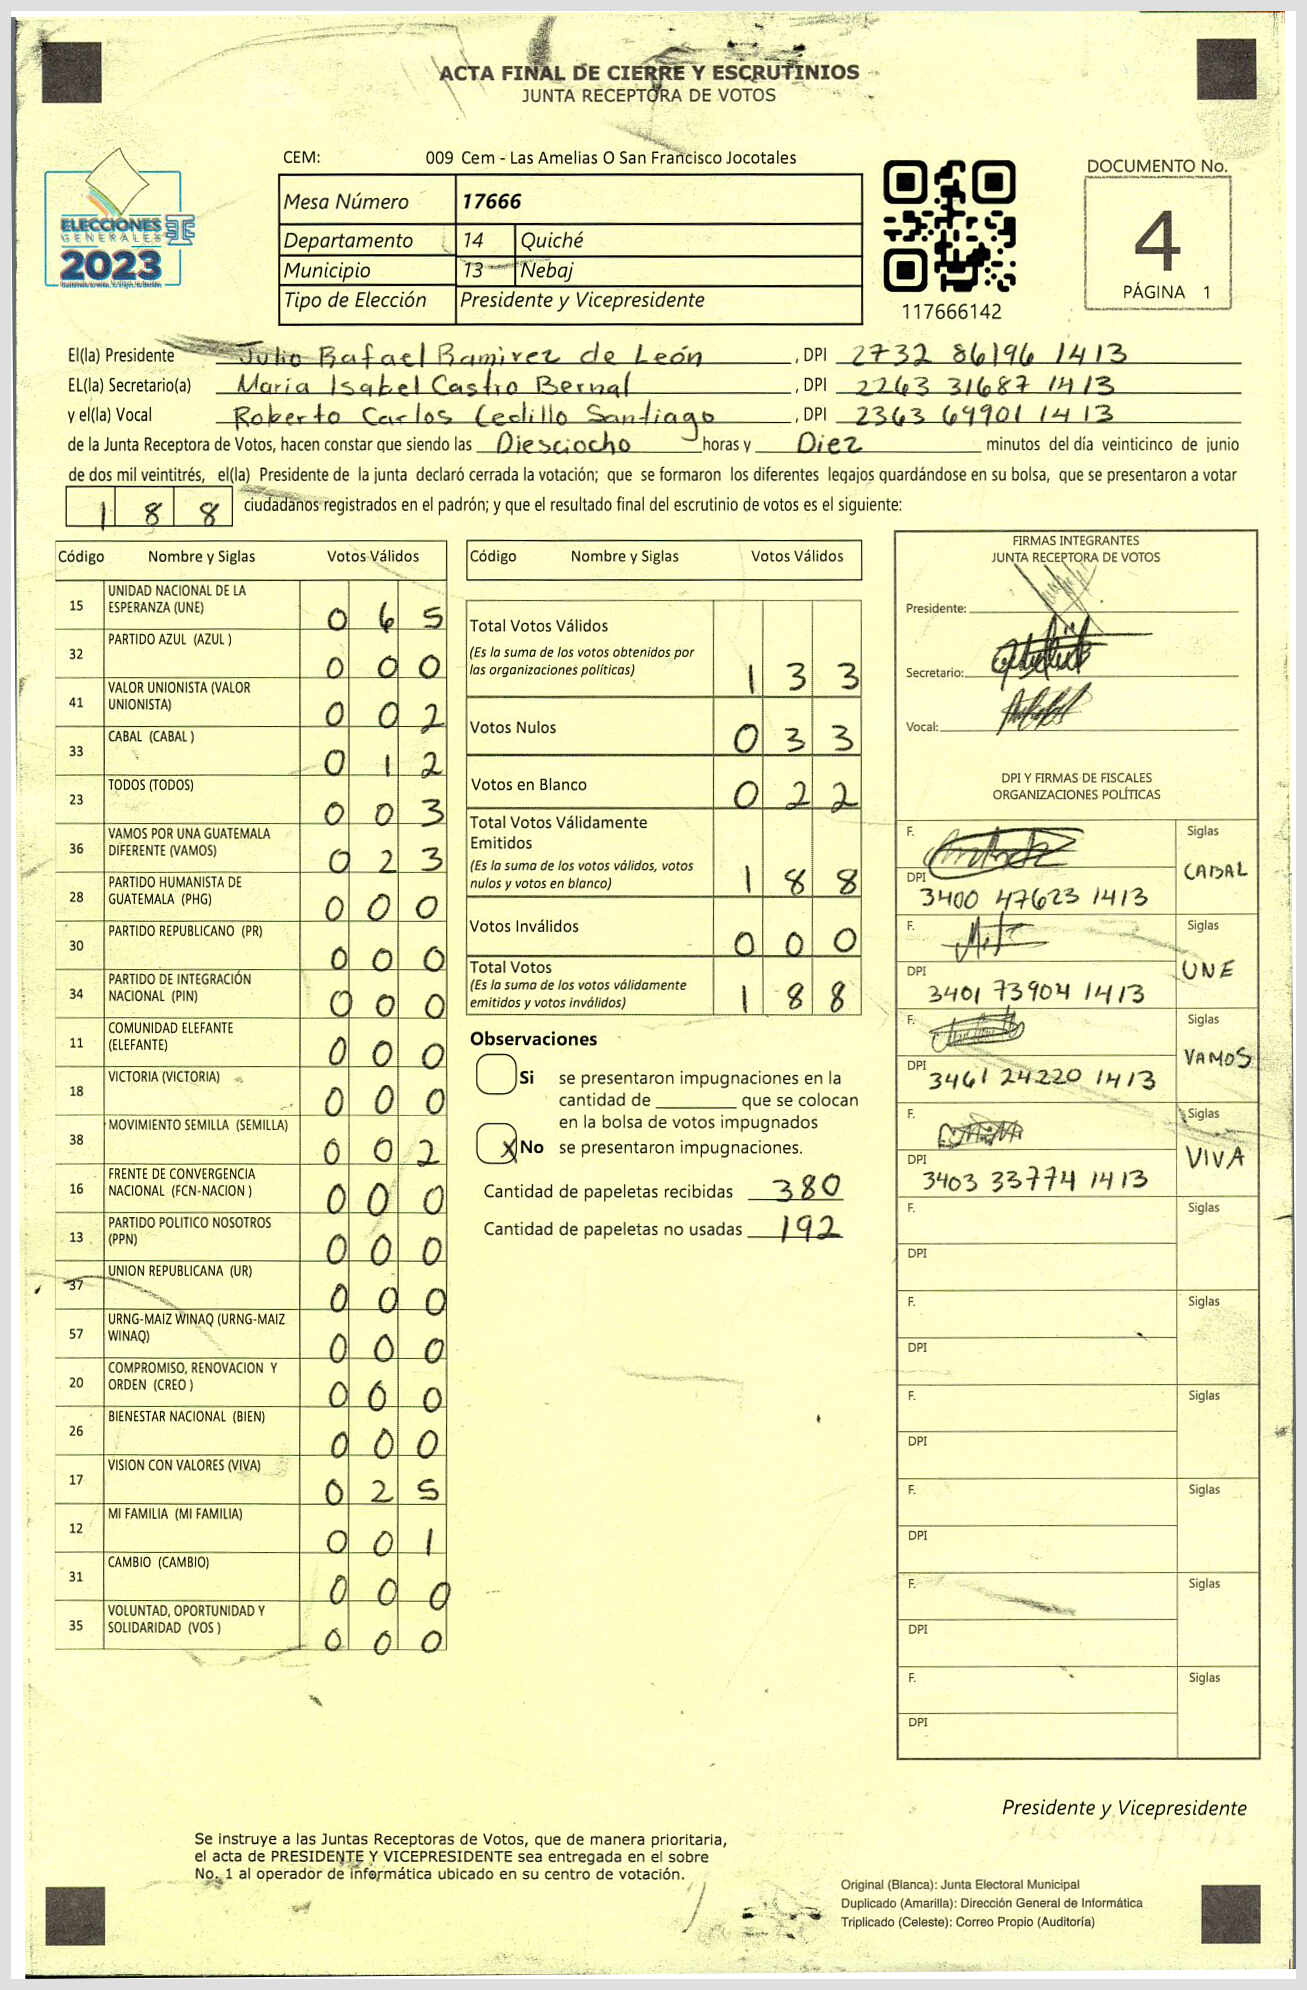 ACTA FINAL DE CIERRE Y ESCRUTINIOS
JUNTA RECEPTORA DE VOTOS
ELECCIONES
GENERALES
2023
CEM: 009 Cem - Las Amelias O San Francisco Jocotales
Mesa Número 17666
Departamento 14 Quiché
Municipio 13 Nebaj
Tipo de Elección Presidente y Vicepresidente
117666142
DOCUMENTO No.
4
PÁGINA 1
El(la) Presidente Julio Rafael Ramirez de León , DPI 2732 86196 1413
EL(la) Secretario(a) Maria Isabel Castro Bernal , DPI 2263 31687 1413
y el(la) Vocal Roberto Carlos Cedillo Santiago , DPI 2363 69901 1413
de la Junta Receptora de Votos, hacen constar que siendo las Diesciocho horas y Diez minutos del día veinticinco de junio
de dos mil veintitrés, el(la) Presidente de la junta declaró cerrada la votación; que se formaron los diferentes legajos quardándose en su bolsa, que se presentaron a votar
188 ciudadanos registrados en el padrón; y que el resultado final del escrutinio de votos es el siguiente:
Código Nombre y Siglas Votos Válidos
15 UNIDAD NACIONAL DE LA
ESPERANZA (UNE) 0 6 5
32 PARTIDO AZUL (AZUL ) 0 0 0
41 VALOR UNIONISTA (VALOR
UNIONISTA) 0 0 2
33 CABAL (CABAL ) 0 1 2
23 TODOS (TODOS) 0 0 3
36 VAMOS POR UNA GUATEMALA
DIFERENTE (VAMOS) 0 2 3
28 PARTIDO HUMANISTA DE
GUATEMALA (PHG) 0 0 0
30 PARTIDO REPUBLICANO (PR) 0 0 0
34 PARTIDO DE INTEGRACIÓN
NACIONAL (PIN) 0 0 0
11 COMUNIDAD ELEFANTE
(ELEFANTE) 0 0 0
18 VICTORIA (VICTORIA) 0 0 0
38 MOVIMIENTO SEMILLA (SEMILLA) 0 0 2
16 FRENTE DE CONVERGENCIA
NACIONAL (FCN-NACION ) 0 0 0
13 PARTIDO POLITICO NOSOTROS
(PPN) 0 0 0
37 UNION REPUBLICANA (UR) 0 0 0
57 URNG-MAIZ WINAQ (URNG-MAIZ
WINAQ) 0 0 0
20 COMPROMISO, RENOVACION Y
ORDEN (CREO ) 0 0 0
26 BIENESTAR NACIONAL (BIEN) 0 0 0
17 VISION CON VALORES (VIVA) 0 2 5
12 MI FAMILIA (MI FAMILIA) 0 0 1
31 CAMBIO (CAMBIO) 0 0 0
35 VOLUNTAD, OPORTUNIDAD Y
SOLIDARIDAD (VOS ) 0 0 0
Código Nombre y Siglas Votos Válidos
Total Votos Válidos
(Es la suma de los votos obtenidos por
las organizaciones políticas) 1 3 3
Votos Nulos 0 3 3
Votos en Blanco 0 2 2
Total Votos Válidamente
Emitidos
(Es la suma de los votos válidos, votos
nulos y votos en blanco) 1 8 8
Votos Inválidos 0 0 0
Total Votos
(Es la suma de los votos válidamente
emitidos y votos inválidos) 1 8 8
Observaciones
Si se presentaron impugnaciones en la
cantidad de ________ que se colocan
en la bolsa de votos impugnados
X No se presentaron impugnaciones.
Cantidad de papeletas recibidas 380
Cantidad de papeletas no usadas 192
FIRMAS INTEGRANTES
JUNTA RECEPTORA DE VOTOS
Presidente:
Secretario:
Vocal:
DPI Y FIRMAS DE FISCALES
ORGANIZACIONES POLÍTICAS
F. Siglas
CABAL
DPI
3400 47623 1413
F. Siglas
UNE
DPI
3401 73904 1413
F. Siglas
VAMOS
DPI
3461 24220 1413
F. Siglas
VIVA
DPI
3403 33774 1413
F. Siglas
DPI
F. Siglas
DPI
F. Siglas
DPI
F. Siglas
DPI
F. Siglas
DPI
F. Siglas
DPI
Presidente y Vicepresidente
Se instruye a las Juntas Receptoras de Votos, que de manera prioritaria,
el acta de PRESIDENTE Y VICEPRESIDENTE sea entregada en el sobre
No. 1 al operador de informática ubicado en su centro de votación.
Original (Blanca): Junta Electoral Municipal
Duplicado (Amarilla): Dirección General de Informática
Triplicado (Celeste): Correo Propio (Auditoría)